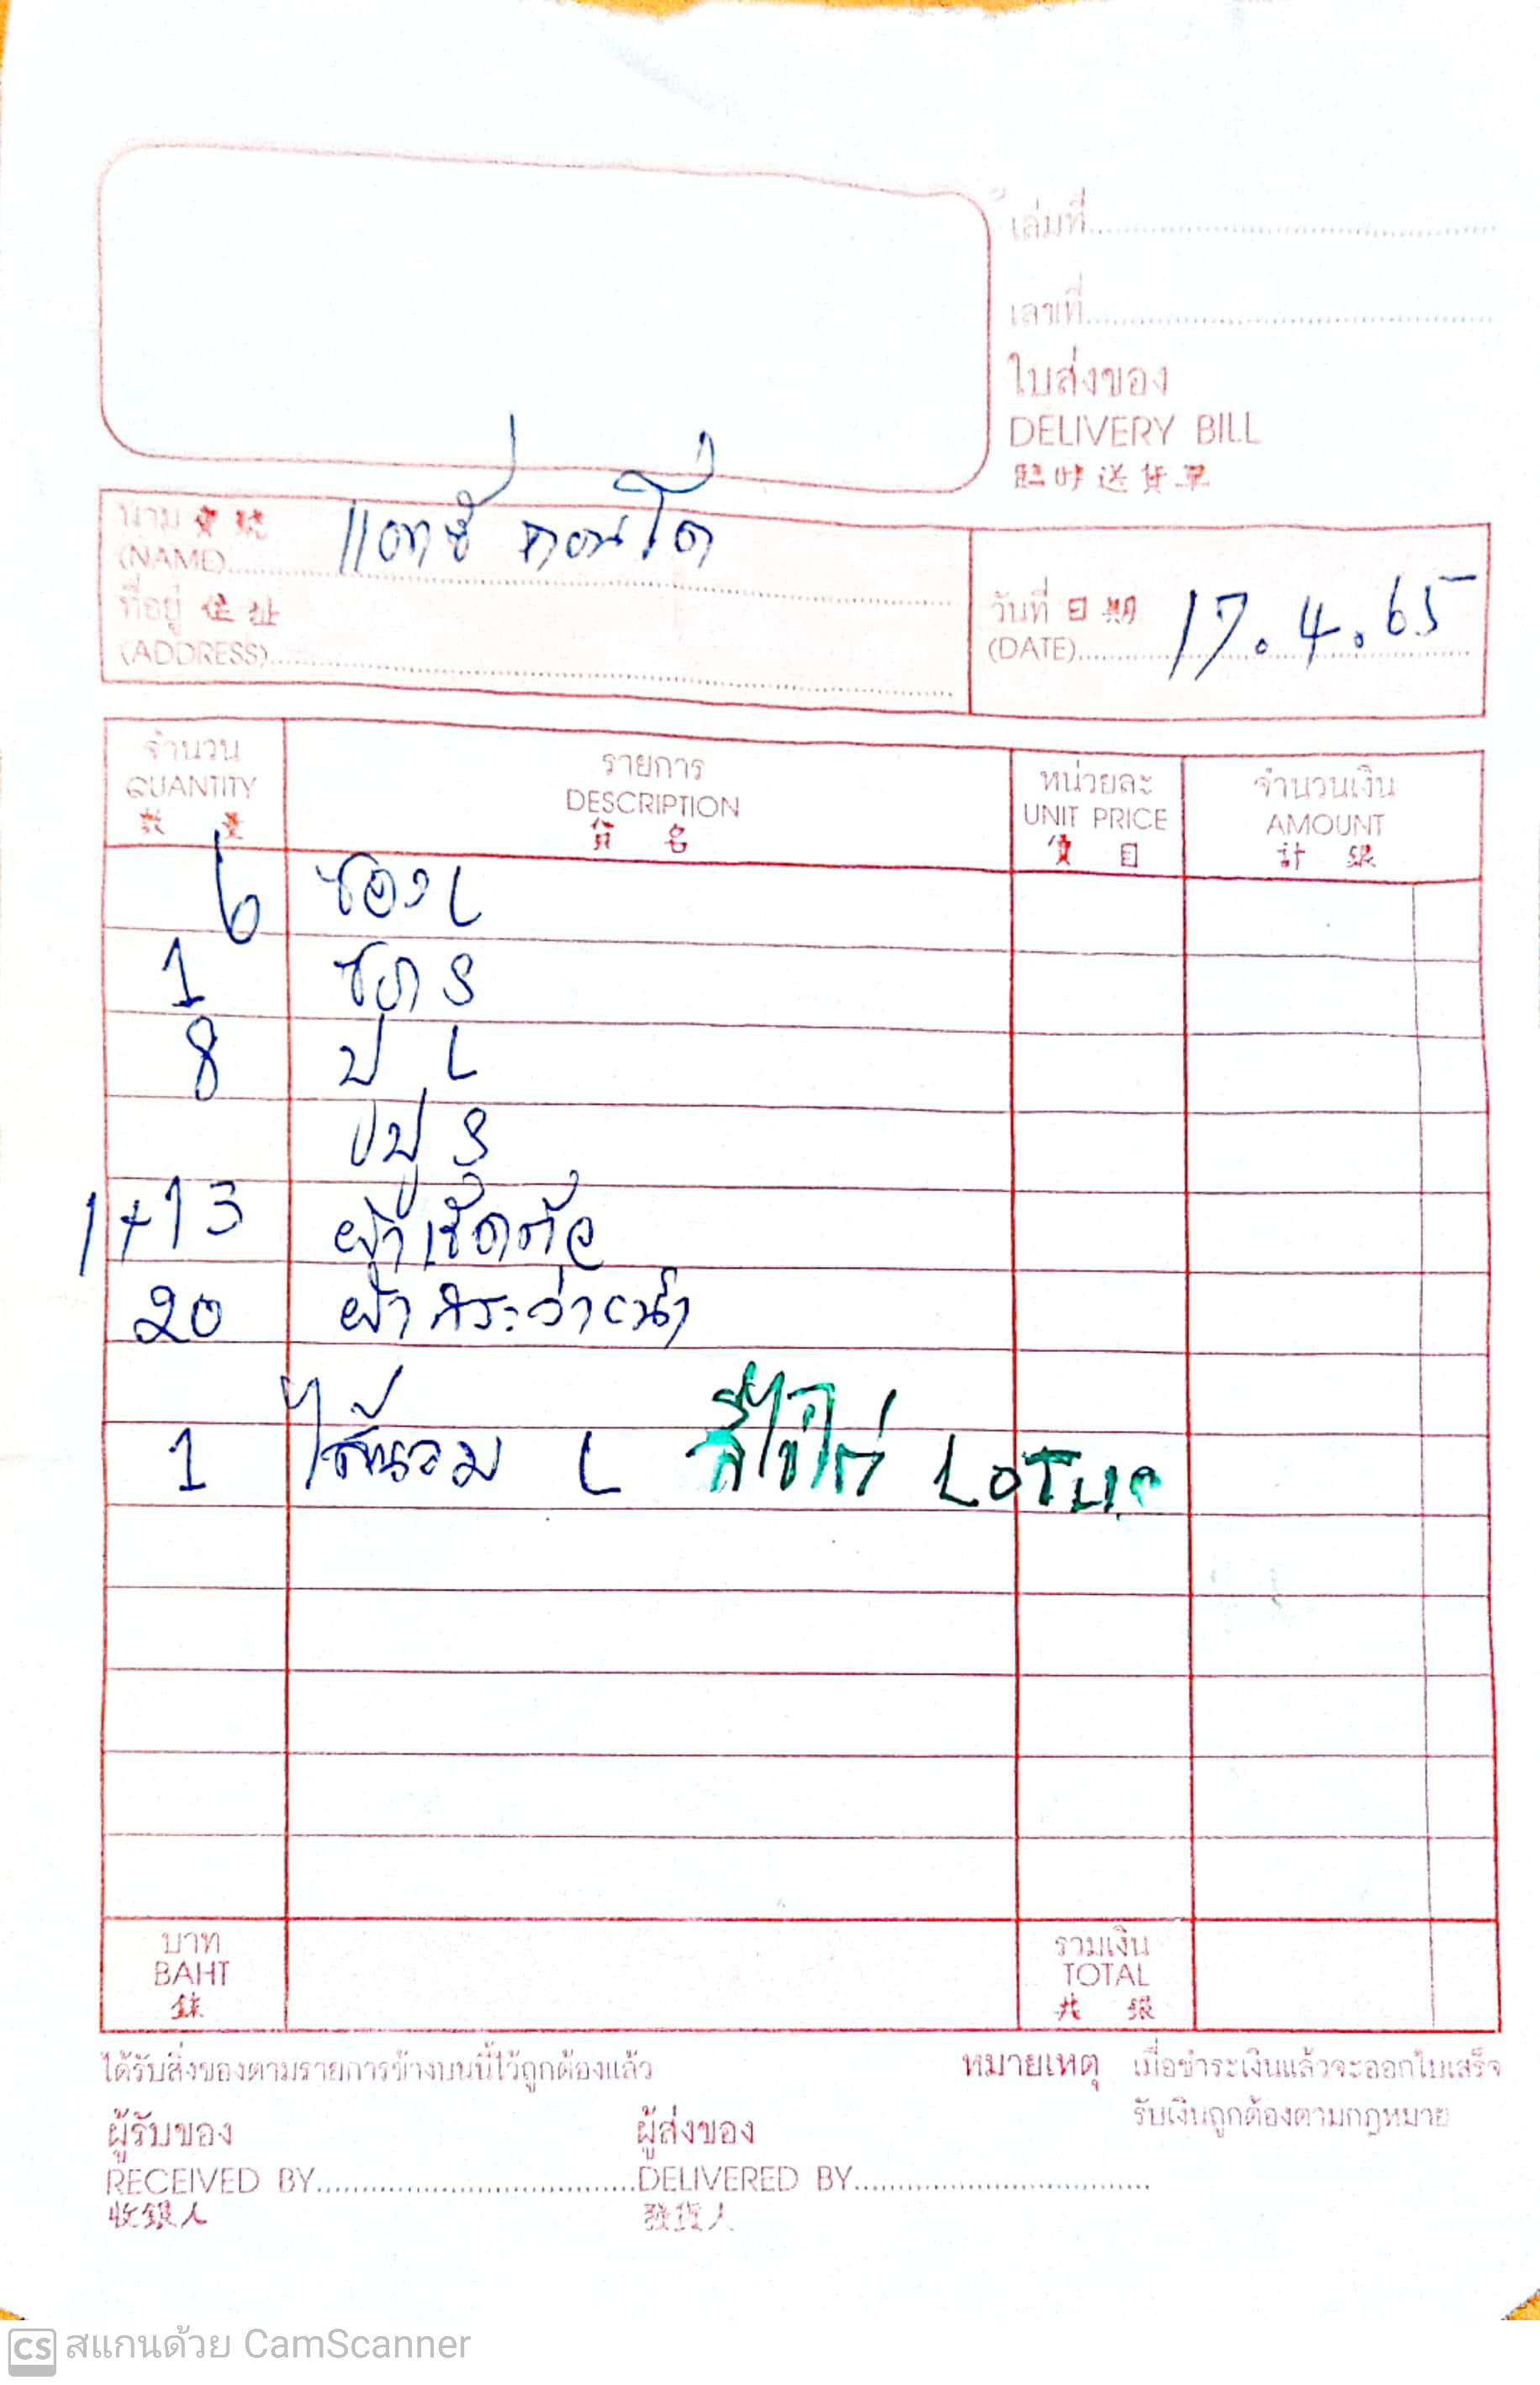 เล่มที่
เลขที่
ใบส่งของ
DELIVERY BILL
臨時送貨單
นาม 寶號
(NAME) แอทซ์ คอนโด
ที่อยู่ 住址
(ADDRESS)
วันที่ 日期
(DATE) 17.4.65
จำนวน รายการ หน่วยละ จำนวนเงิน
QUANTITY DESCRIPTION UNIT PRICE AMOUNT
數量 貨名 價目 計銀
6 ซอง L
1 S
8 ป L
ปู S
1+13 ผ้าเช็ดตัว
20 ผ้า
1 ไส้นวม L สีไข่ไก่ LOTUS
บาท รวมเงิน
BAHT TOTAL
銖 共銀
ได้รับสิ่งของตามรายการข้างบนนี้ไว้ถูกต้องแล้ว หมายเหตุ เมื่อชำระเงินแล้วจะออกใบเสร็จ
รับเงินถูกต้องตามกฎหมาย
ผู้รับของ ผู้ส่งของ
RECEIVED BY DELIVERED BY
收銀人 發貨人
CS สแกนด้วย CamScanner